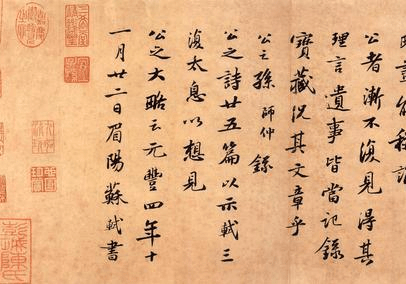 盡能稱誦
公者漸不復見得其
理言遺事皆當記錄
寶藏況其文章乎
公之孫師仲錄
公之詩廿五篇以示軾三
復太息以想見
公之大略云元豐四年十
一月廿二日眉陽蘇軾書
彭城陳氏